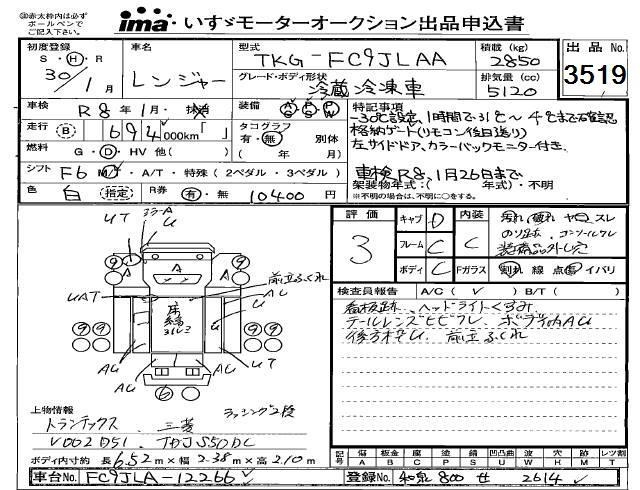 ㊟赤太枠内は必ず
ボールペンで
ご記入下さい。
ima いすゞモーターオークション出品申込書
初度登録 S・H・R 30年1月
車名 レンジャー
型式 TKG-FC9JLAA
積載(kg) 2850
出品No. 3519
グレード・ボディ形状 冷蔵冷凍車
排気量(cc) 5120
車検 R8年1月・抹消
装備 A/C P/S P/W
特記事項
-30℃設定、1時間で-31℃~
格納ゲート(リモコン後日送り)
左サイドドア、カラーバックモニター付き、
車検R8、1月26日まで
走行 B 694,000km「 」
タコグラフ 有・無 別体
( 年 月)
燃料 G・D・HV 他( )
シフト F6 M/T・A/T・特殊(2ペダル・3ペダル)
架装物年式:( 年式)・不明
※不明の場合は、不明に○をする。
色 白(指定)
R券 有・無 10400円
評価 3
キャブ D
内装 C
フレーム C
ボディ C
Fガラス 割れ 線 点傷 イバリ
汚れ 破れ ヤケ スレ
のり跡、コンソールワレ
装備品外し穴
検査員報告 A/C(✓) B/T( )
看板跡、ヘッドライトくすみ
テールレンズヒビワレ、ボディ内AU
前立ふくれ
UT ミラーA U
前立ふくれ
UAT A A AU U
床
UT
AU AU AU
上物情報 ラッシング2段
トランテックス 三菱
V002D51 TDJS50DC
ボディ内寸約 長6.52m×幅2.38m×高2.10m
記号 傷A 凹B 腐C 塗P 補S 錆U 凸凹曲U 波W 穴H 欠M レツ割T
車台No. FC9JLA-12266
登録No. 和泉 800 せ 2614